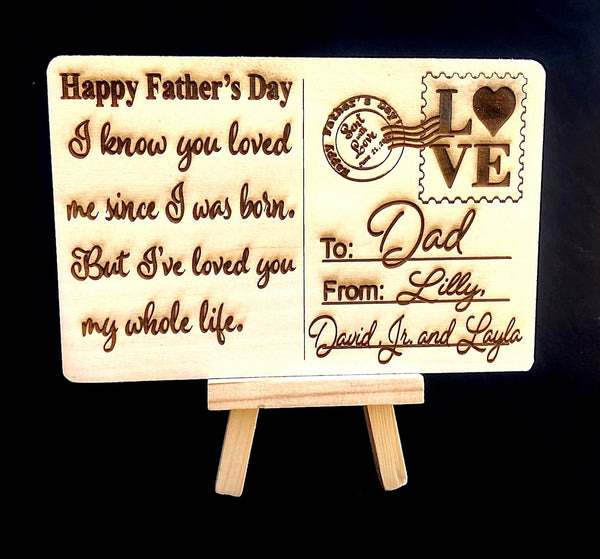 Happy Father's Day
I know you loved
me since I was born.
But I've loved you
my whole life.
Happy Father's Day!
Sent
with
Love
L♥
VE
To: Dad
From: Lilly,
David, Jr. and Layla